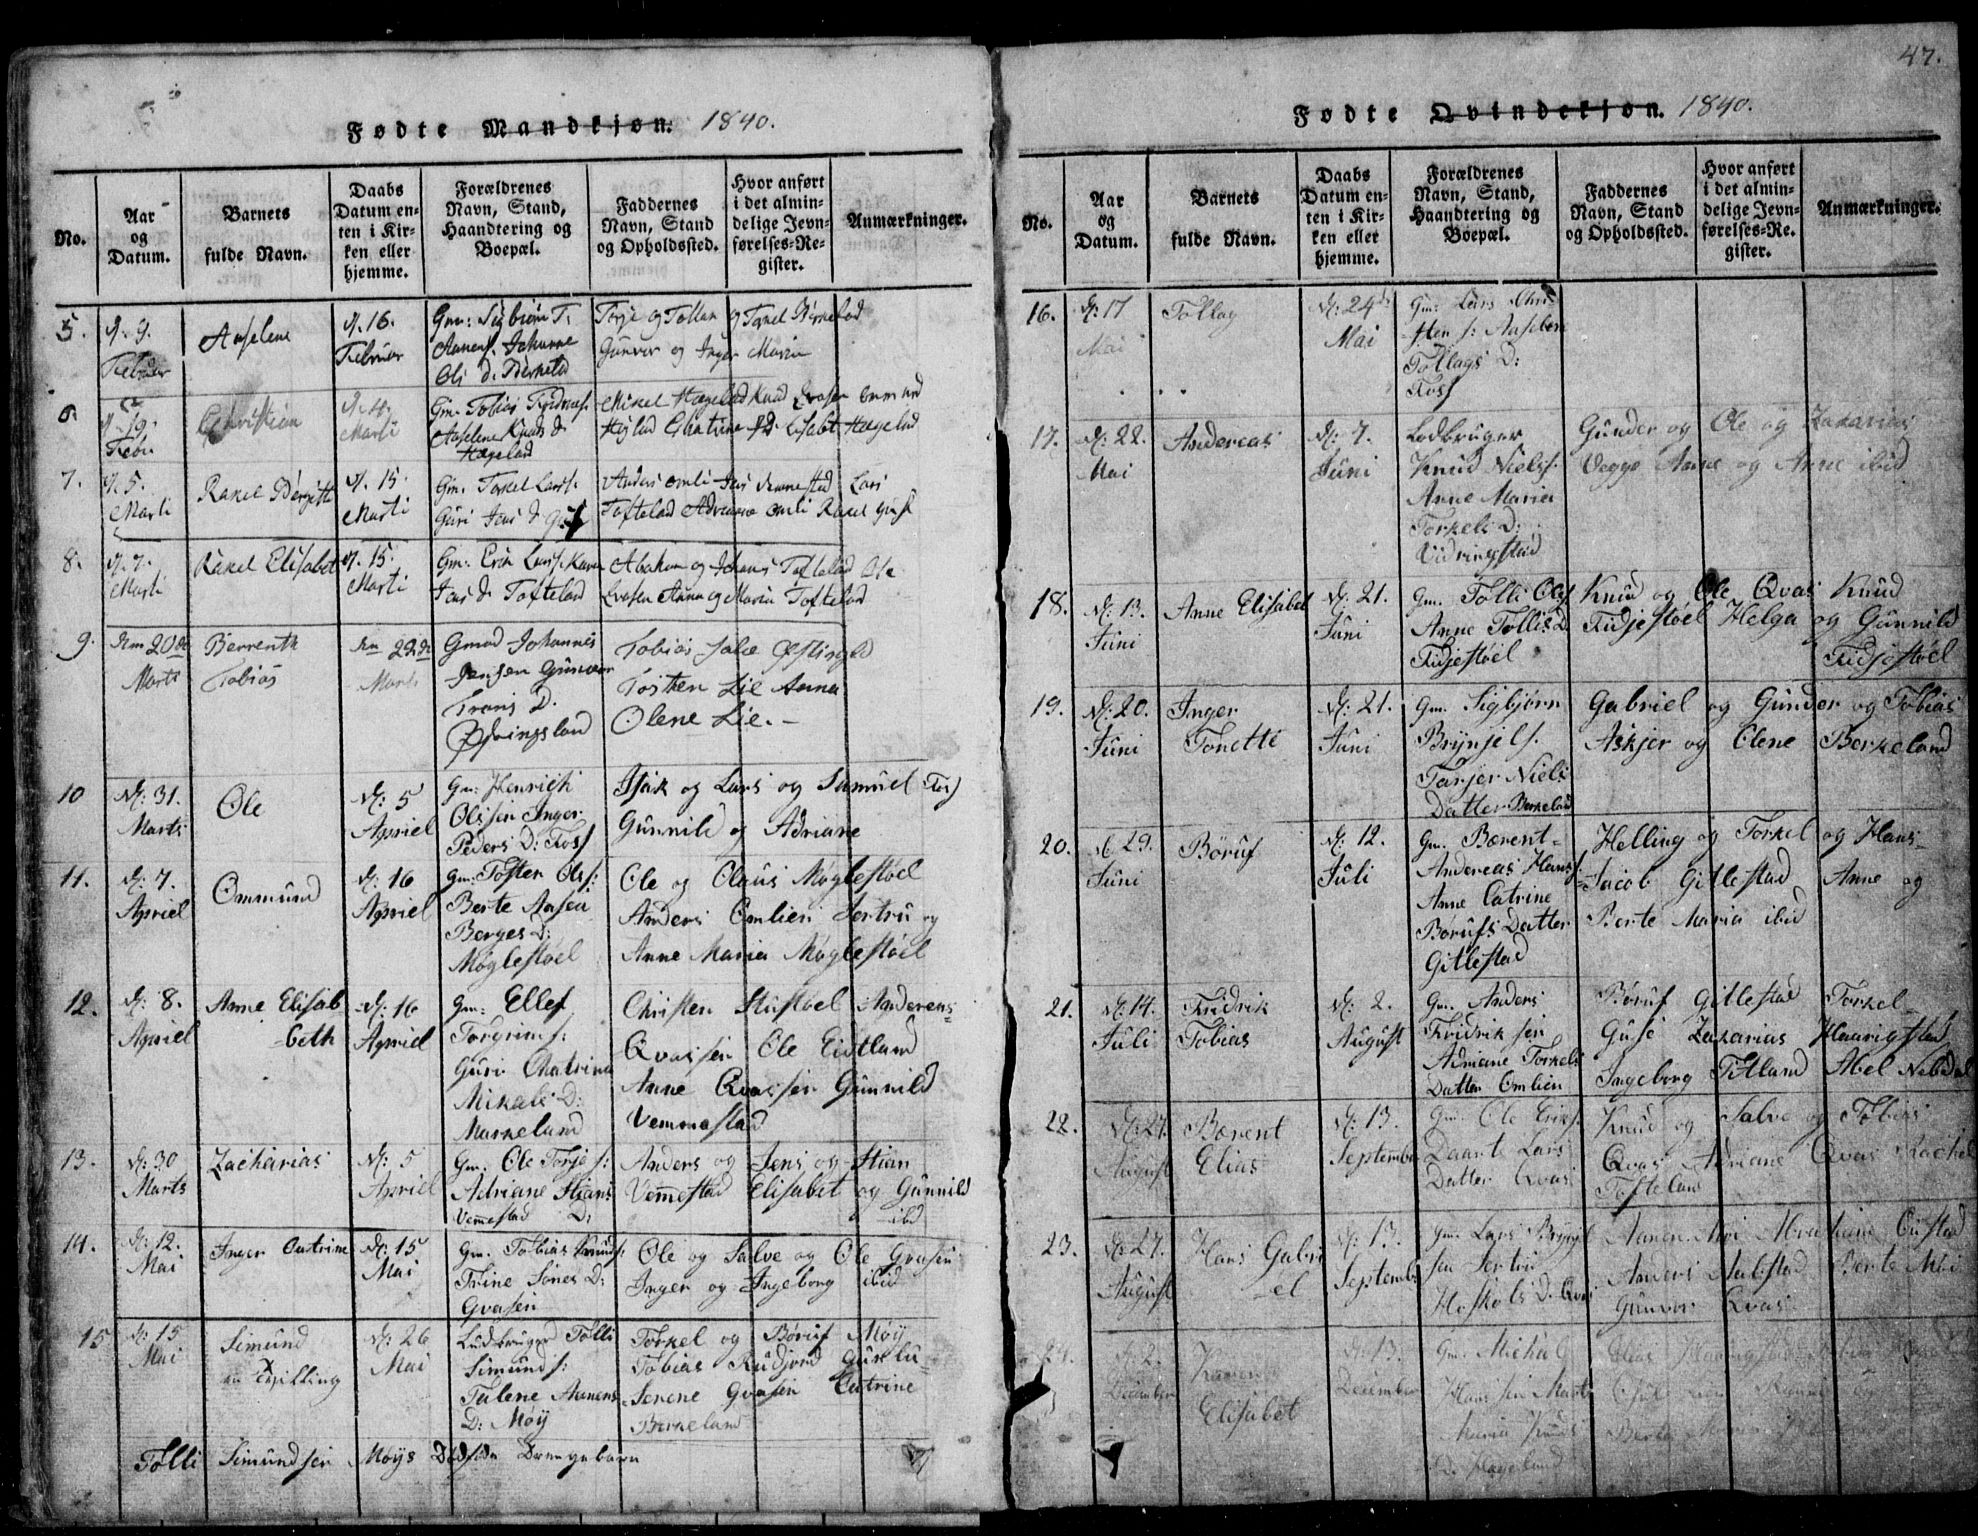 Fødte Mandkjøn. 1840.
No.
Aar og Datum.
Barnets fulde Navn.
Daabs Datum enten i Kirken eller hjemme.
Forældrenes Navn, Stand, Haandtering og Boepæl.
Faddernes Navn, Stand og Opholdssted.
Hvor anført i det almindelige Jevnførelses-Register.
Anmærkninger.
5.
9. Februar
Aaselene
16. Februar
Gm: Sigbiørn T:
Aanens. Johanne
Ols d. Berkelad
Torje og Tollan og Torkel Berkelad
Gunvor og Inger Maria
6.
19. Febr
Christian
Marti
Gm. Tobias
Aaselene Knuds d
Hægelad
Mikel Hægelad Knud Qvasen
Catrine Lisabet Hægelad
7.
5. Marti
Rakel Bergitt
15. Marti
Gm. Torkel Larss.
Guri Jens d
Anders Omli Jens Vemestad Lars
Toftelad Adriane Omli Rakel
8.
7. Marti
Rakel Elisabet
15. Marti
Gm. Erik Larss. Karen
Jens d Toftelad
Abraham og Johans Toftelad Ole
Qvasen Anna og Maria Toftelad
9.
den 20de Marts
Berrenth
Tobias
den 22de Marts
Gmad Johannes
Jensen Gunvor
Trons D.
Øfringsland
Tobias Salve
Tosten Lie Anna
Olene Lie. –
10
D: 31. Marts
Ole
D: 5 Apriel
Gm: Henrich
Olssen Inger
Peders D: Foss
Isak og Lars og Samuel Foss
Gunnild og Adriane
11.
D: 7. Apriel
Ommund
D: 16 Apriel
Gm: Tosten Ols:
Berte Aasen
Berges D:
Møglestøel
Ole og Olaus Møglestøel
Anders Omlien Jertru og
Anne Maria Møglestøel
12.
D: 8. Apriel
Anne Elisab
beth
D: 16 Apriel
Gm: Ellef
Torgrims:
Guri Chatrina
Mikals D:
Markeland
Christen Stustøel Anderens
Qvassen Ole Eidtland
Anne Qvassen Gunnild
Vemmestad
13.
D: 30 Marts
Zacharias
D: 5 Apriel
Gm. Ole Torjes:
Adriane Stians
Vemestad D:
Anders og Jens og Stian
Vemestad Elisabet og Gunnild
ibd
14.
D: 12. Mai
Inger Catrine
D: 15 Mai
Gm. Tobias Knuds:
Trine Sønes D:
Qvasen
Ole og Salve og Ole Qvasen
Inger og Ingeborg ibid
15
D: 15 Mai
Simund
en Tvilling
D: 26 Mai
Ludbruger Tølli
Simunds:
Talene Aanens
D: Møy
Torkel og Børuf Møy
Tobias Rudjord
Senene Qvasen Catrine
Berkeland
Tølli Simundsen Møys Dødføde Drengebarn

Fødte Qvindekjøn. 1840.
47.
No.
Aar og Datum.
Barnets fulde Navn.
Daabs Datum enten i Kirken eller hjemme.
Forældrenes Navn, Stand, Haandtering og Boepæl.
Faddernes Navn, Stand og Opholdssted.
Hvor anført i det almindelige Jevnførelses-Register.
Anmærkninger.
16.
D: 17 Mai
Tollag
D: 24de Mai
Gm: Lars Chri
sten s: Aasebore
Tollags D:
Foss
17.
D: 22. Mai
Andereas
D: 7. Juni
Lodbruger
Knud Niels:
Anne Maria
Torkels D:
Vidringstad
Gunder og Ole og Zakarias
Vegge Anne og Anne ibid
18.
D: 13. Juni
Anne Elisabet
D: 21. Juni
Gm. Tolli Ols:
Anne Tollis D.
Fidjestøel
Knud og Ole Qvas Knud
Fidjestøel Helga og Gunnild
Fidjestøel
19.
D: 20. Juni
Inger
Tonette
D: 21. Juni
Gm. Sigbjørn
Brynjels.
Tarjer Niels
Datter Berkeland
Gabriel og Gunder og Tobias
Askjer og Olene Berkeland
20.
D: 29. Juni
Børuf
D: 12. Juli
Gm. Bærent
Andereas Hans:
Anne Catrine
Børufs Datter
Gitlestad
Helling og Torkel og Hans
Jacob Gitlestad Anne og
Berte Maria ibid
21.
D: 14. Juli
Fridrik
Tobias
D: 2. August
Gm. Anders
Fridriksen
Adriane Torkels
Datter Omlien
Børuf Gitlestad Torkel
Guse Zakarias Haarigstad
Ingeborg Titland Abel Nebdal
22.
D: 27. August
Bærent
Elias
D: 13. September
Gm. Ole Eriks:
Daarte Lars
Datter Qvas
Knud og Salve og Tobias
Qvas Adriane Qvas Rachel
Tofteland
23.
D: 27. August
Hans Gabri
el
D: 13. September
Gm. Lars Brynjel
sen Jertru
Hoskols D. Qvas
Aanen Moi Abraham
Anders Berte Moi
Gunvor Qvas
24.
D: 2. December
Karen
Elisabet
D: 13. December
Gm. Michal
Hanssen
Maria Knuds
D. Hægeland
Elias
Berte Maria